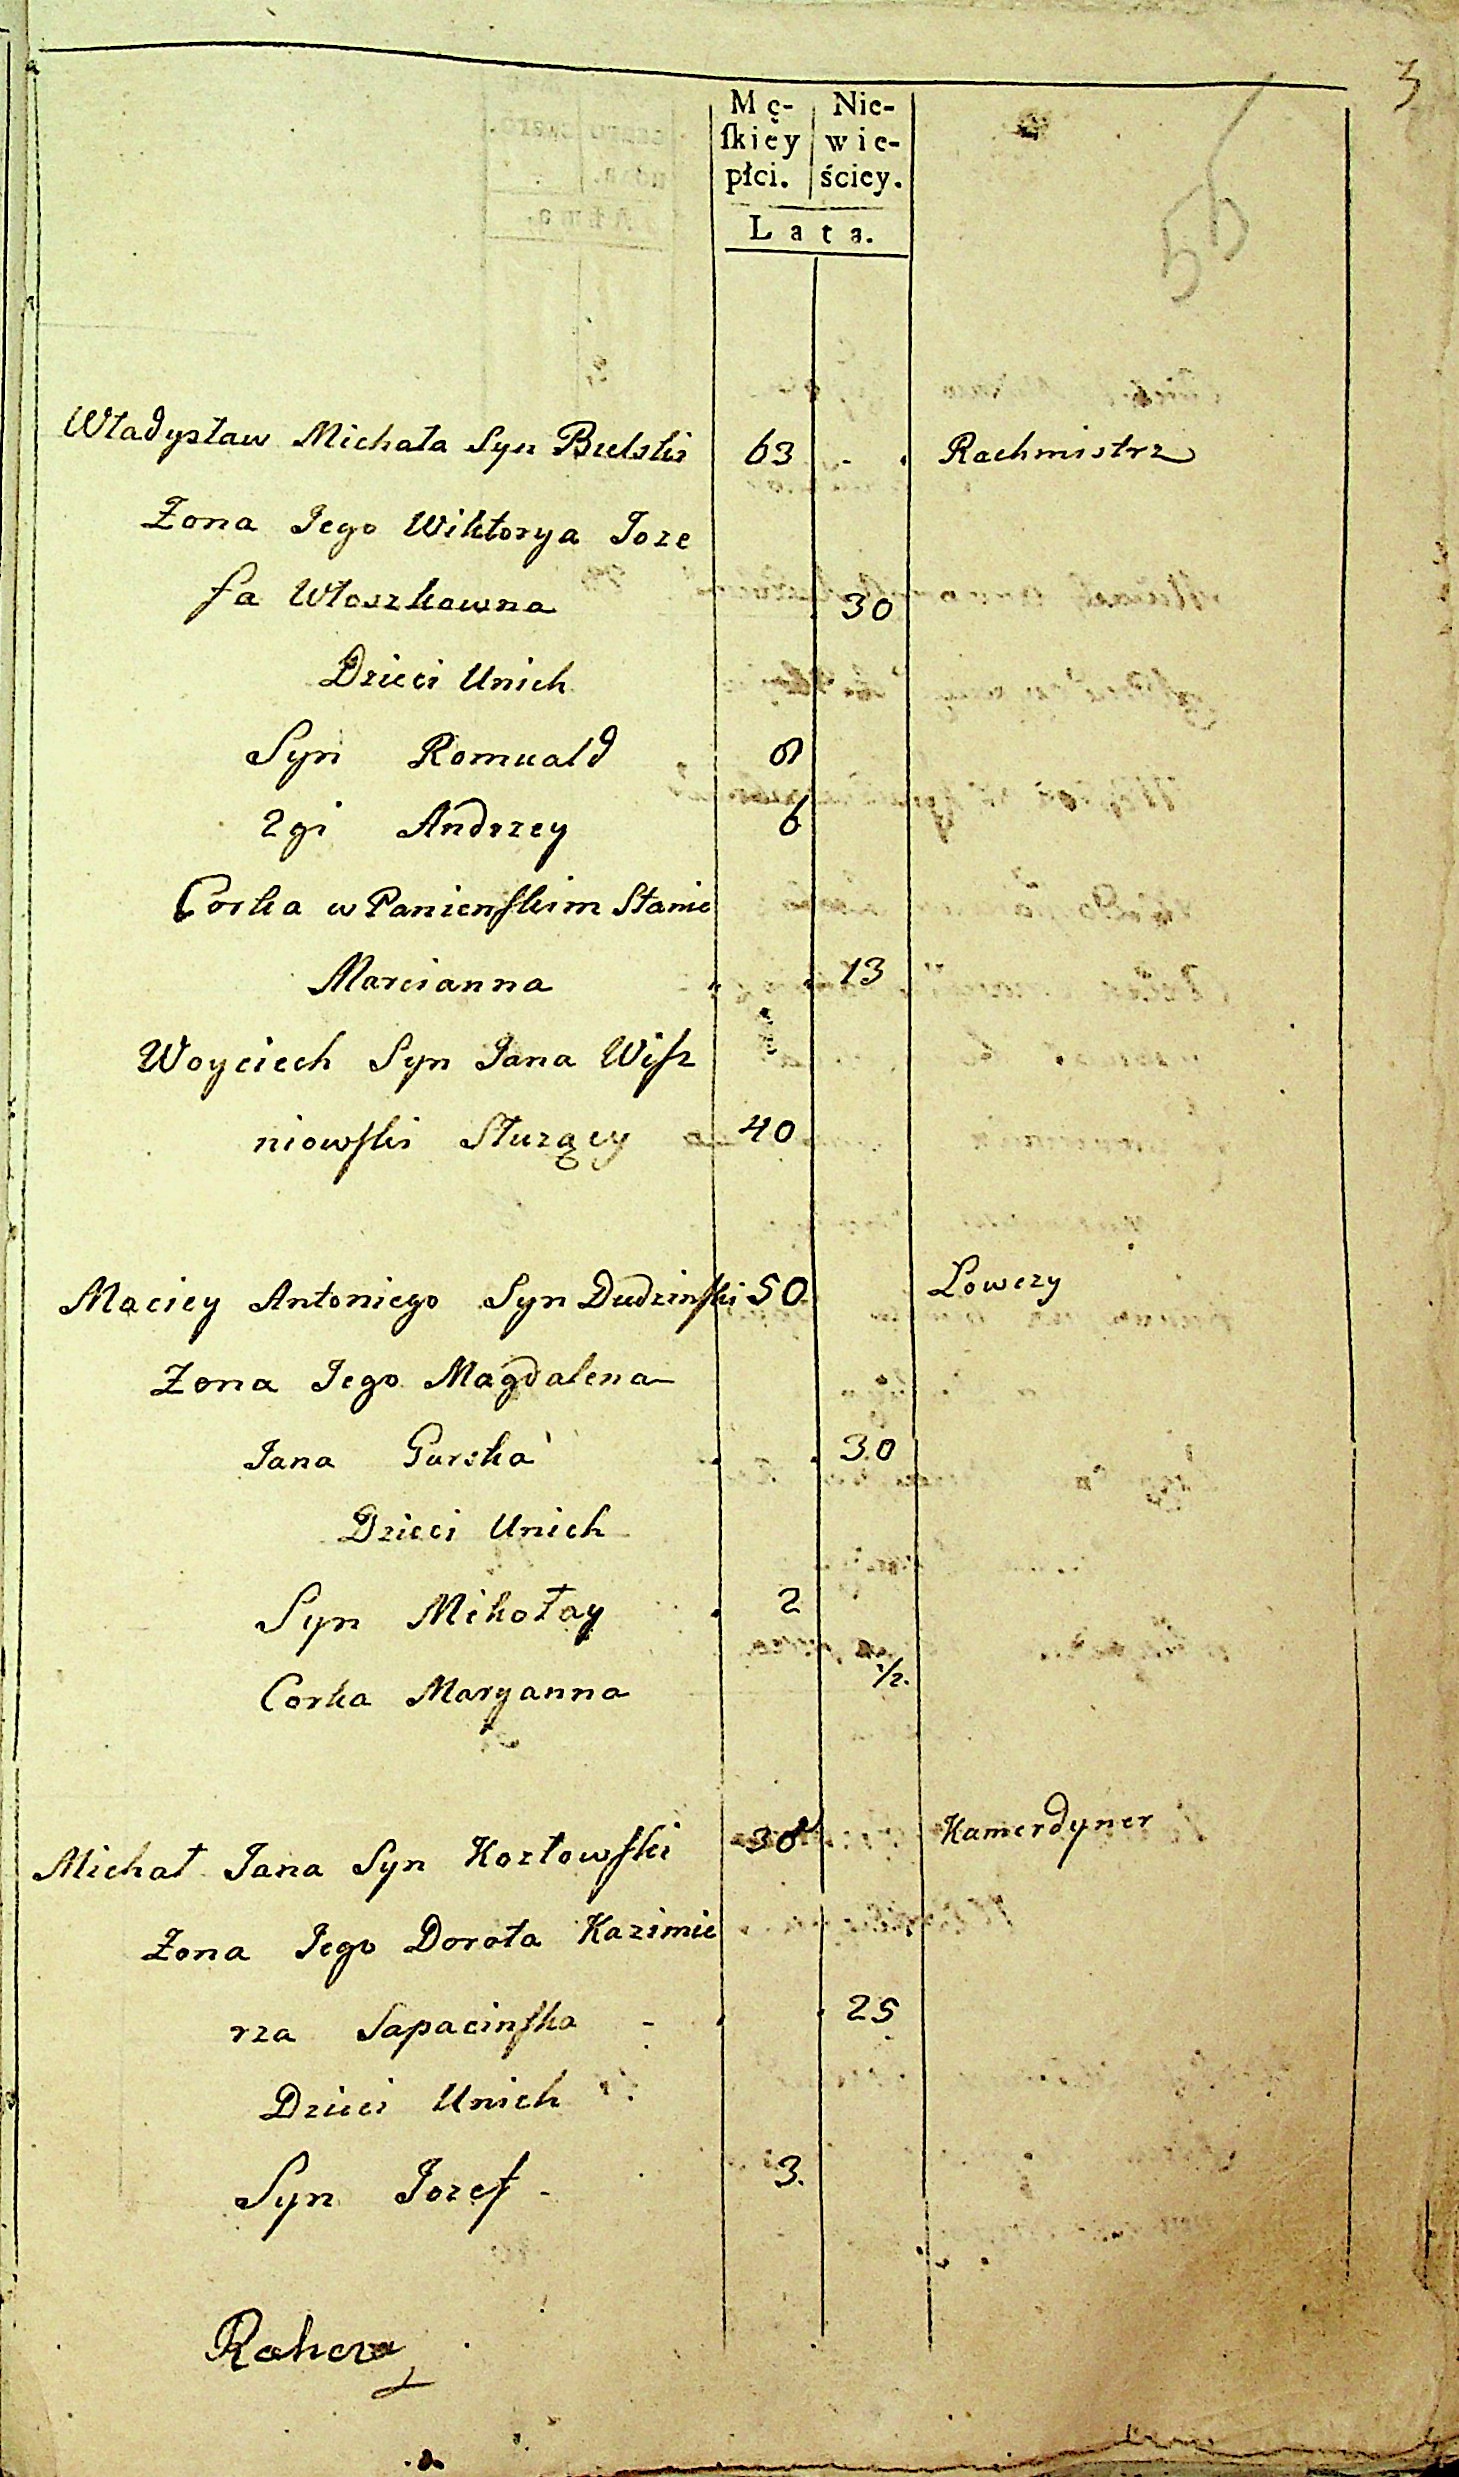 3
55
Mę- Nie-
ſkiey wie-
płci. ściey.
Lata.
Władysław Michała Syn Bielski 63 - . Rachmistrz
Zona Jego Wiktorya Joze
fa Włoszkowna 30
Dzieci Unich
Syn Romuald 8
2gi Andrzey 6
Corka w Panienſkim Stanie
Marcianna 13
Woyciech Syn Jana Wiſz
niowſki Służący 40
Maciey Antoniego Syn Dudzinſki 50 Łowczy
Zona Jego Magdalena
Jana Gurska 30
Dzieci Unich
Syn Mikołay 2
Corka Maryanna 1/2.
Michał Jana Syn Kozłowſki 38 Kamerdyner
Zona Jego Dorota Kazimie
rza Sapacinſka - 25
Dzieci Unich
Syn Jozef - 3.